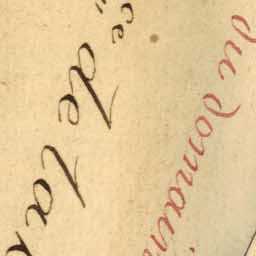 du domain
ce de la